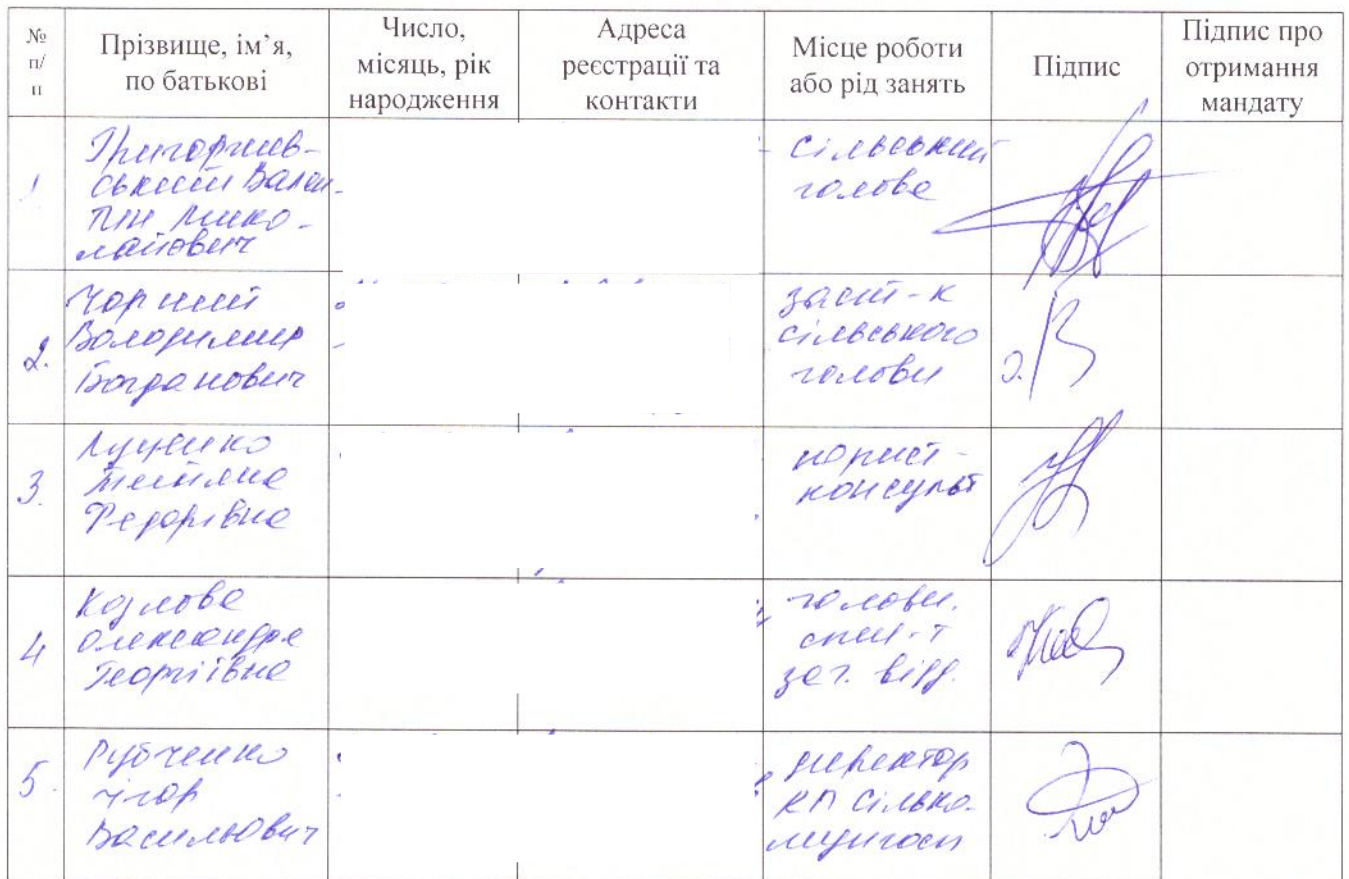 № п/п
Прізвище, ім’я, по батькові
Число, місяць, рік народження
Адреса реєстрації та контакти
Місце роботи або рід занять
Підпис
Підпис про отримання мандату
1
Григориев-
ський Вален-
тин Мико-
лайович
сільський
голова
2.
Чорний
Володимир
Богданович
заст-к
сільського
голови
3.
Луценко
Тетяна
Федорівна
юрист-
консульт
4
Козлова
Олександра
Георгіївна
головн.
спец-т
заг. відд.
5.
Рубченко
Ігор
Васильович
директор
КП Сілько-
мунгосп